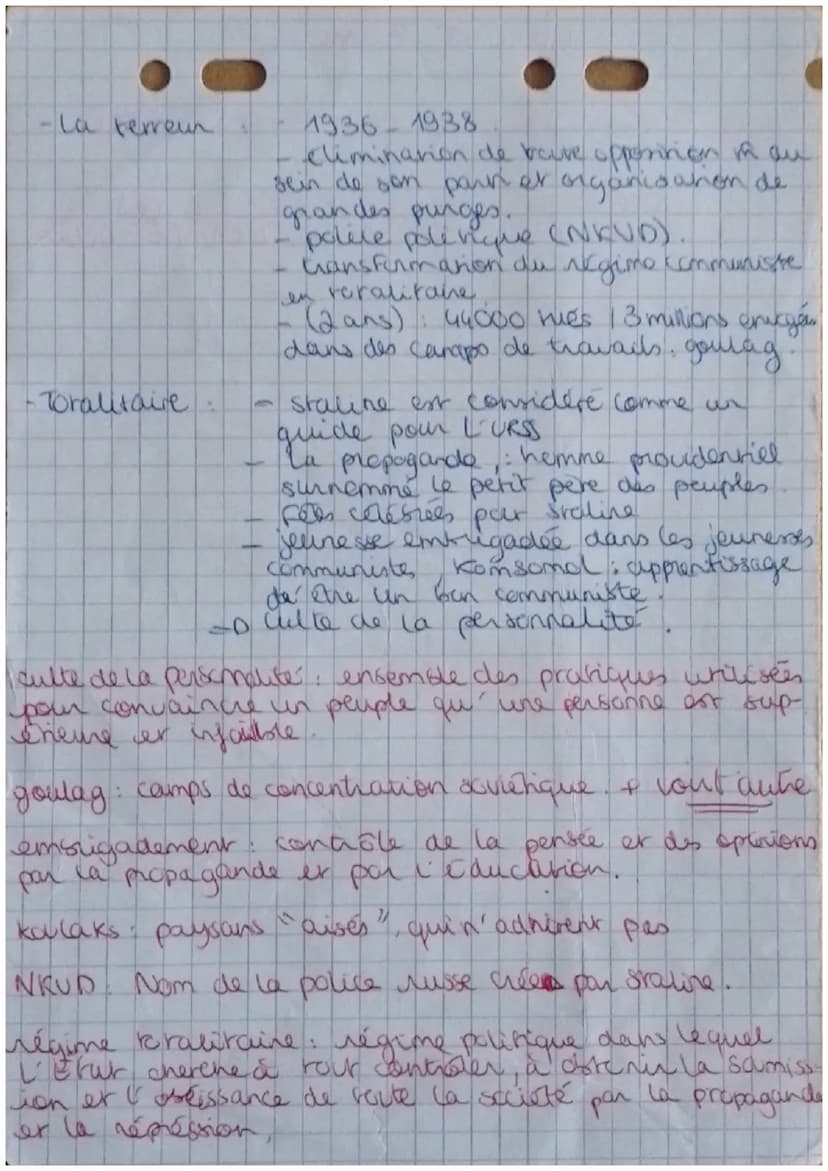 - La terreur : - 1936 - 1938
- élimination de toute opposition au
sein de son parti et organisation de
grandes purges.
- police politique (NKVD).
- transformation du régime communiste
en totalitaire
- (2 ans) : 44000 tués / 3 millions
dans des camps de travails. goulag.
- Totalitaire : - staline est considéré comme un
guide pour L'URSS
- La propagande : homme providentiel
surnommé le petit père des peuples.
- Fêtes célébrées pour staline
- jeunesse embrigadée dans les jeunesses
communistes, Komsomol : apprentissage
être un bon communiste.
Culte de la personnalité.
culte de la personnalités : ensemble des pratiques utilisées
pour convaincre un peuple qu'une personne est sup-
érieure et infaillible.
goulag : camps de concentration soviétique. + tout autre
embrigadement : contrôle de la pensée et des opinions
par la propagande et par l'éducation.
koulaks : paysans "aisés", qui n'adhèrent pas
NKVD : Nom de la police russe créée par staline.
régime totalitaire : régime politique dans lequel
L'État cherche à tout contrôler, à obtenir la soumiss-
ion et l'obéissance de toute la société par la propagande
et la répression,